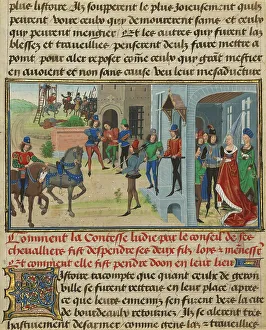 plus listoire Ilz soupperent le plus joieusement quilz
peurent vous ceulx qui demourerent sains et ceulx
qui peurent mengier Et les autres qui furent las
blessez et travailliez penserent deulx faire mettre a
point pour aler reposer come ceulx qui grant mestier
en avoient et non sans cause veu leur mesadventure
Comment la Contesse ludie par le conseil de ses
chevalliers fist despendre ses deux filz lors menesse
Et comment elle fist pendre doon en leur lieu
Listoire racompte que quant ceulx de geron
ville se furent retrais en leur place apres
ce que leurs ennemis sen furent vers la cite
de bourdeaulx retournez Ilz se alerent tres
hastivement desarmer comme gens las et travaillies